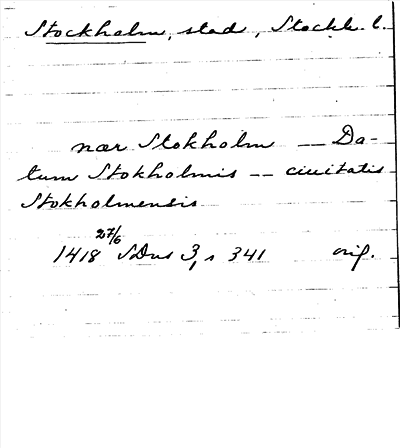 Stockholm, stad, Stockh. l.
nær Stokholm — Da-
tum Stokholmis -- ciuitatis
Stokholmensis
1418 27/6 SDns 3, s 341 orig.